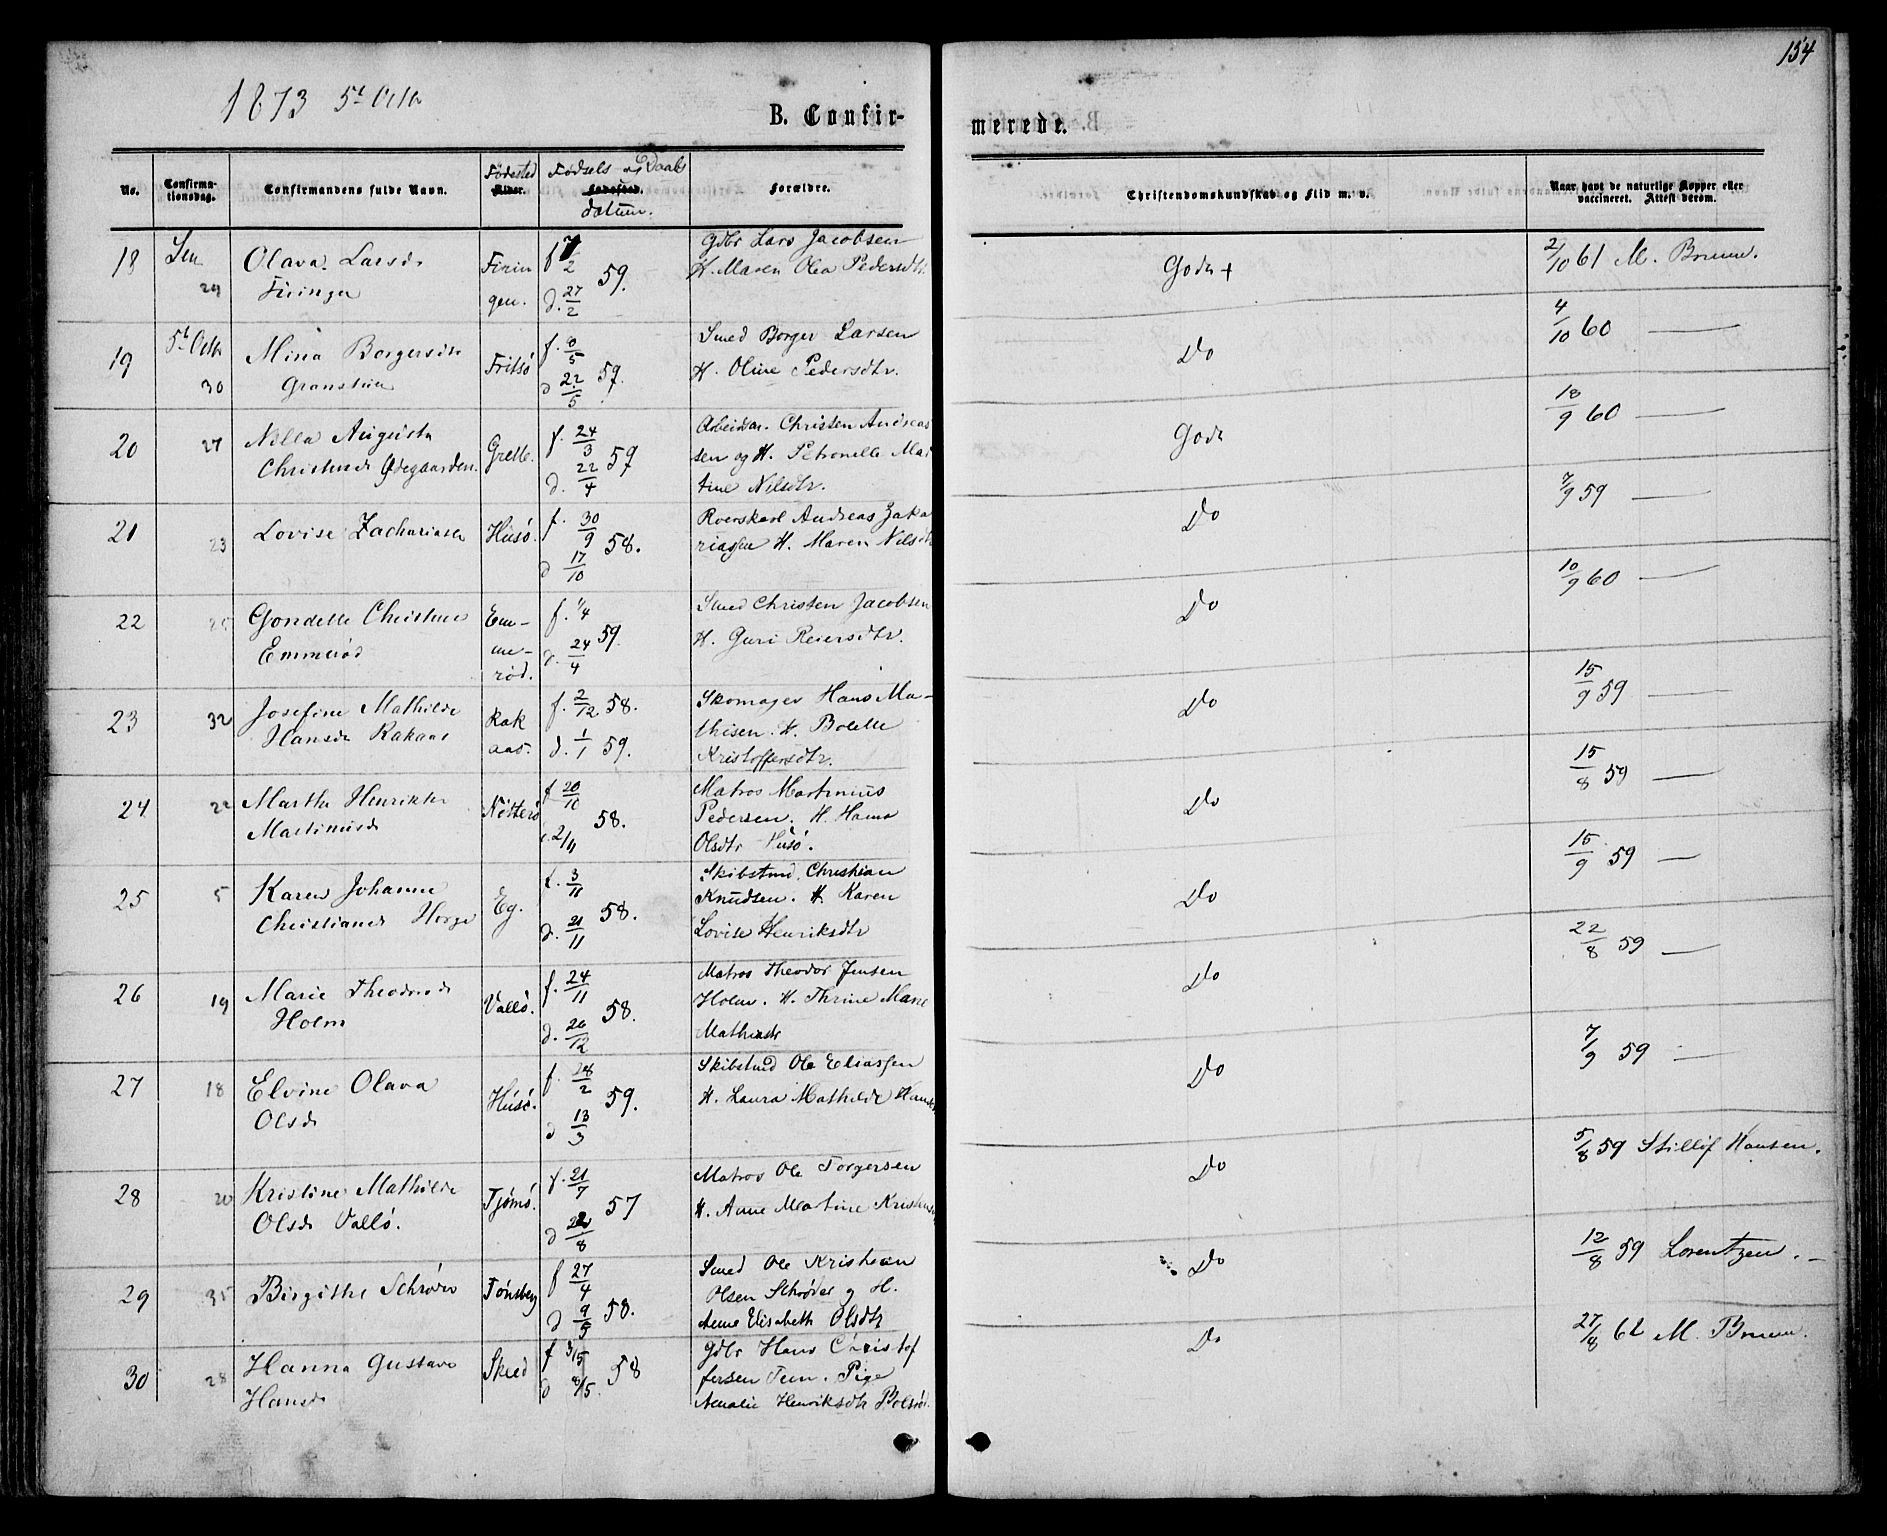 154
1873 5t Octbr
B. Confirmerede.
No. Confirmationsdag. Confirmandens fulde Navn. Fødested Alder. Fødsels og Daabs Fødested. datum. Forældre. Christendomskundskab og Flid m. v. Naar havt de naturlige Kopper eller vaccineret. Attest derom.
18 29 Olava Larsdr Firingen. f 7/2 59. Gdbr Lars Jacobsen Godt + 2/10 61 M. Bruun.
d. 27/2 H. Maren Olea Pedersdtr.
19 5t Octbr Mina Borgersdr Fritsø f. 8/5 57. Smed Borger Larsen Do 4/10 60 —
30 d 22/5 H. Oline Pedersdtr.
20 27 Nilla Augusta Grette. f. 24/3 57 Arbeidsm. Christen Andreas Godt 18/9 60 —
Christensd Ødegaarden. d. 22/4 sen og H. Petronelle Mar
tine Nilsdtr.
21 23 Lovise Zachariasd Husø. f. 30/9 58. Andreas Zaka Do 7/9 59 —
d 17/10 riassen H. Maren Nilsdtr
22 25 Gondelle Christensd Em- f. 1/4 59. Smed Christen Jacobsen Do 10/9 60 —
Emmerød me- d. 24/4 H. Guri Reiersdtr.
rød.
23 32 Josefine Mathilde Rak f. 2/12 58. Skomager Hans Ma- Do 15/9 59 —
Hansdr Rakaas aas. d. 1/1 59. thisen. H. Bolette
Kristoffersdtr.
24 22 Marthe Henrikke Nøtterø f 20/10 58. Matros Martinius Do 15/8 59 —
Martinusd d. 2/11 Pedersen. H. Hanna
Olsdtr Husø.
25 5 Karen Johanne Eg. f. 3/11 58. Skibstmd. Christian Do 15/9 59 —
Christiansd Horge d. 21/11 Knudsen. H. Karen
Lovise Henriksdtr
26 19 Marie Theodorsd Vallø. f. 24/11 58. Matros Theodor Jensen Do 22/8 59 —
Holm d. 26/12 Holm. H. Thrine Marie
Mathiasdr
27 18 Elvine Olava Husø. f. 28/2 59. Skibstmd Ole Eliassen Do 7/9 59 —
Olsd d 13/3 H. Laura Mathilde Hansdr
28 20 Kristine Mathilde Tjømø. f. 21/7 57 Matros Ole Torgersen Do 5/8 59 Stillof Hansen.
Olsdr Vallø. d 22/8 H. Anne Martine
29 35 Birgithe Schrøder Tønsberg f 27/4 58. Smed Ole Kristian Do 12/8 59 Lorentzen. —
d 9/5 Olsen Schrøder og H.
Anne Elisabeth Olsdtr
30 28 Hanna Gustava Skeed f 3/5 58 Gdbr Hans Christof Do 27/8 62 M. Bruun.
Hansd d 8/5. fersen Tem. Pige
Amalie Henriksdtr